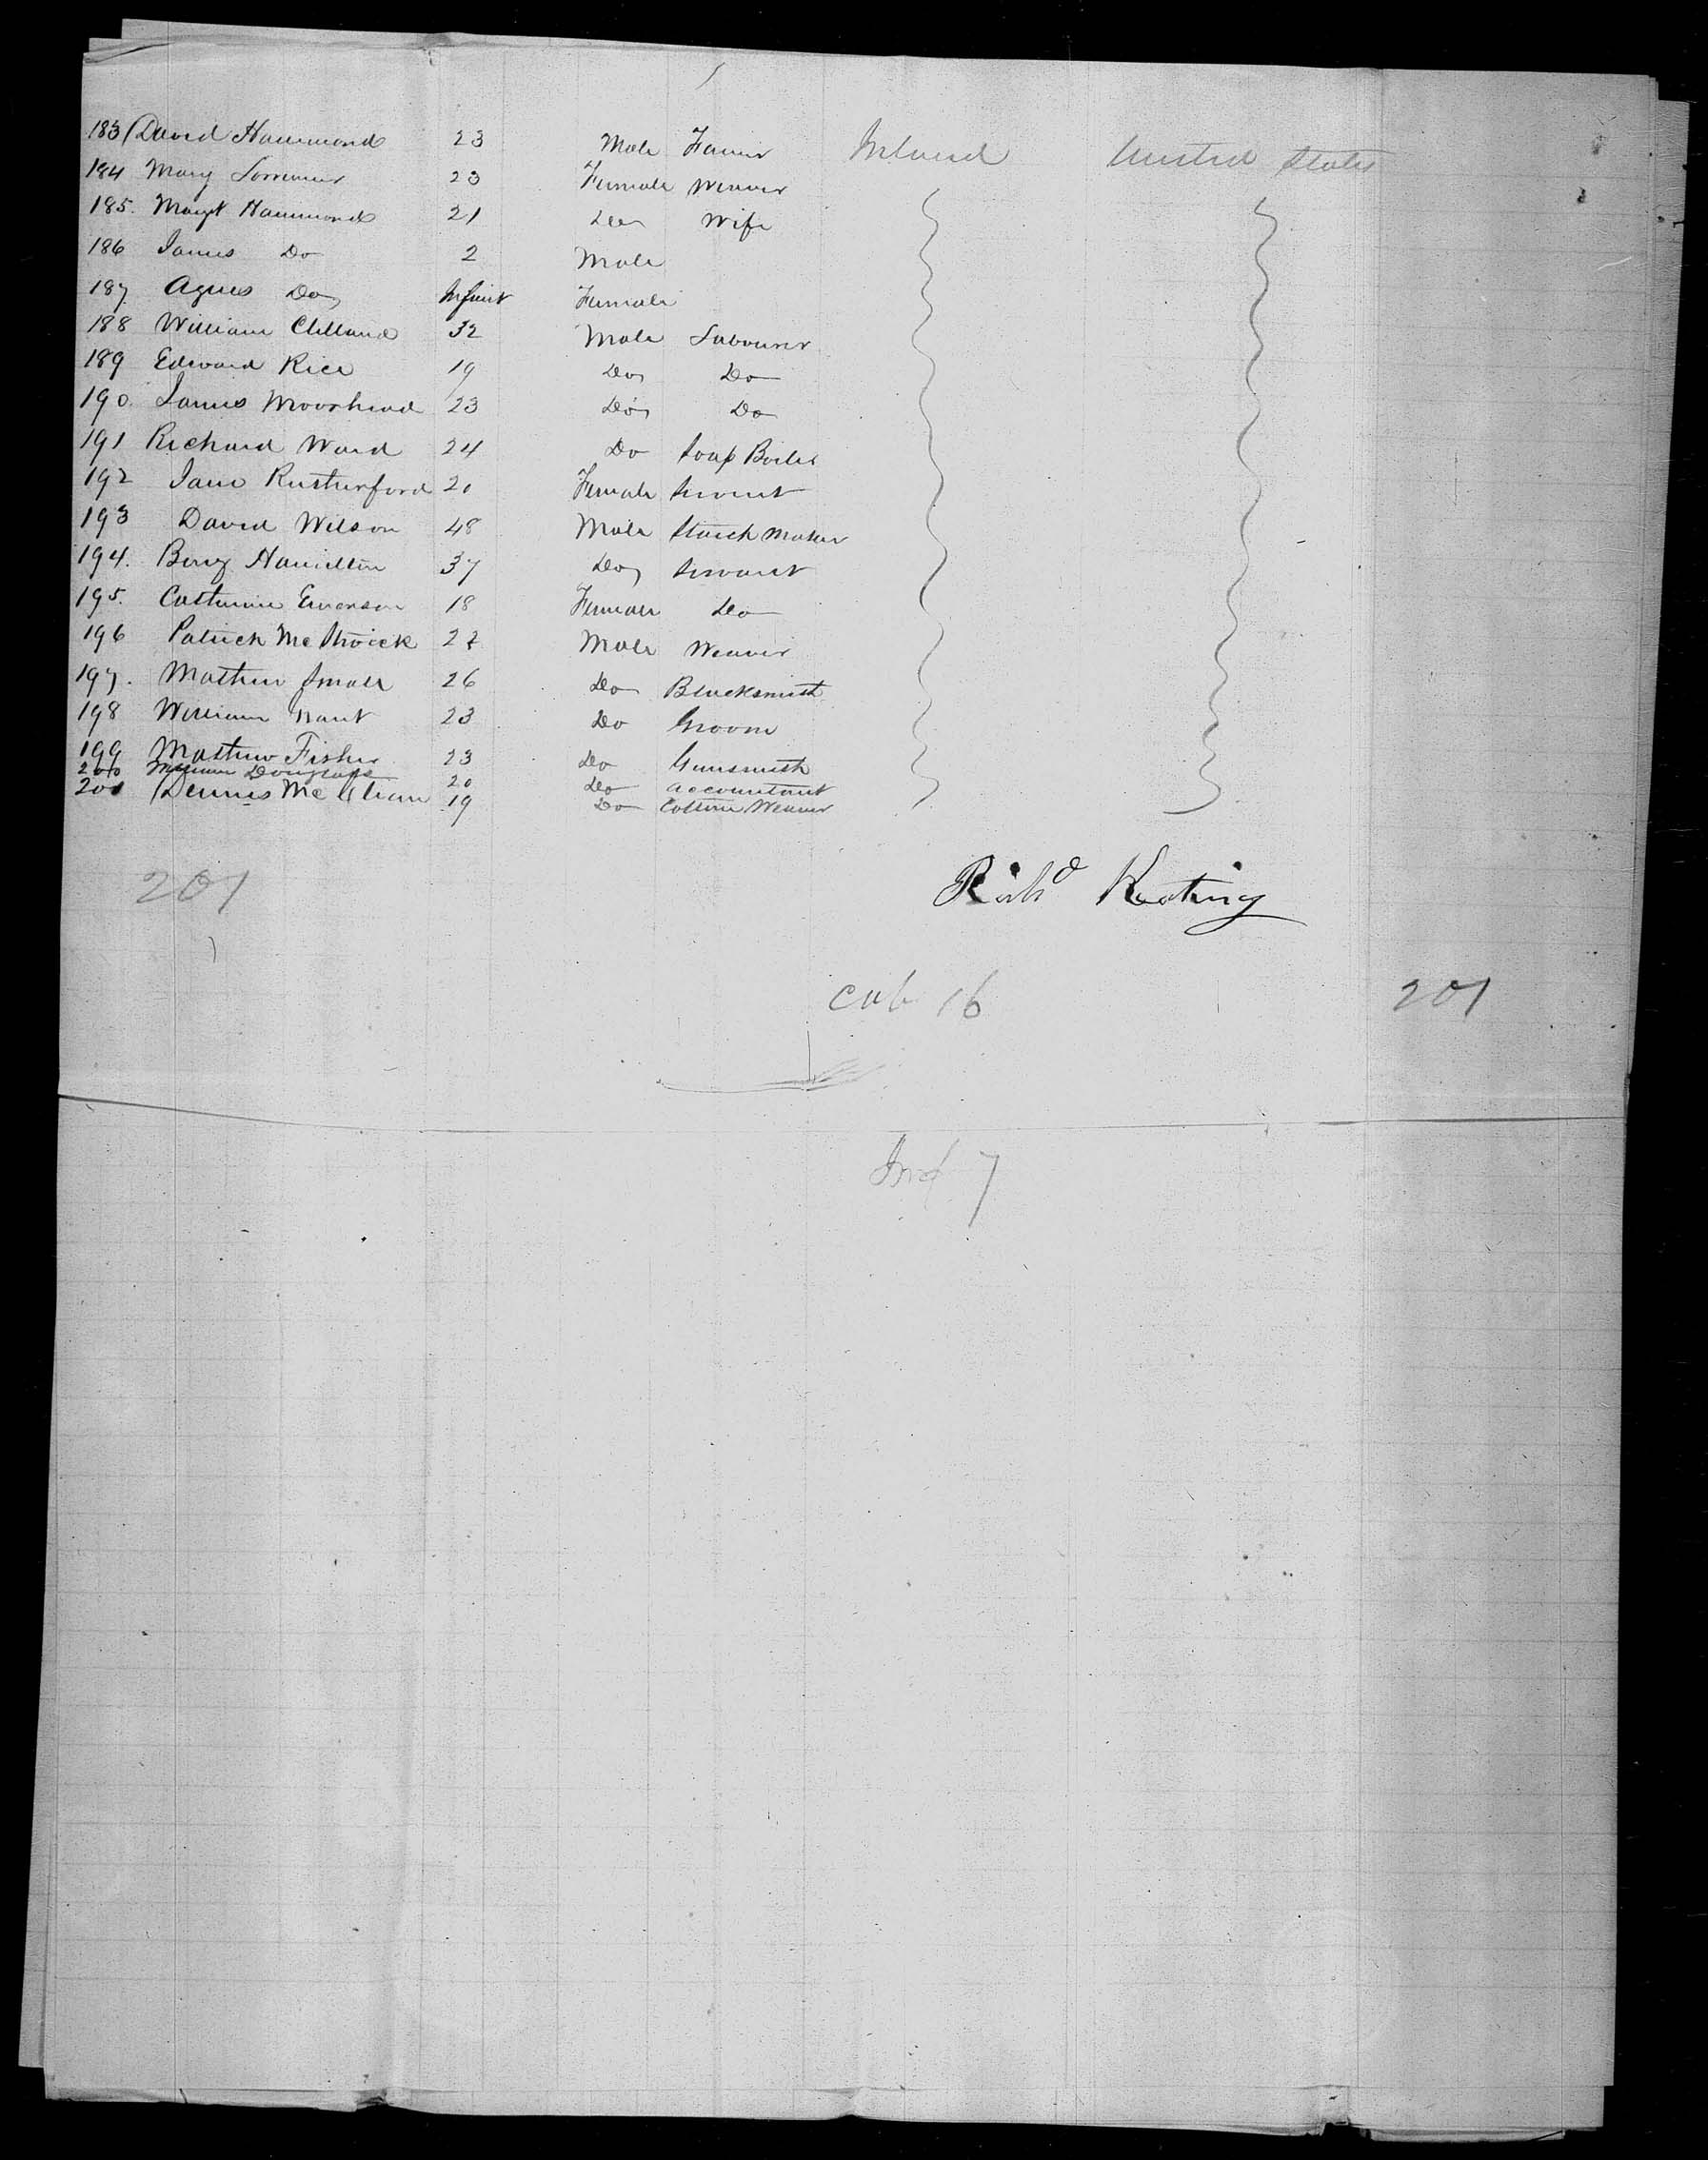 183 David Hammond 23 Male Farmer Ireland United States
184 Mary Lorrimer 23 Female Weaver
185. Margt Hammond 21 Do Wife
186 James Do 2 Male
187. Agnes Do Infant Female
188 William Clelland 32 Male Labourer
189 Edward Rice 19 Do Do
190. James Moorhead 23 Do Do
191 Richard Ward 24 Do Soap Boiler
192 Jane Rutherford 20 Female Servant
193 David Wilson 48 Male Starch Maker
194. Hamilton 37 Do Servant
195. Catherine Emerson 18 Female Do
196 Patrick 22 Male Weaver
197. Mathew Small 26 Do Blacksmith
198 William 23 Do Groom
199 Mathew Fisher 23 Do Gunsmith
200 William Douglass 20 Do Accountant
201 Dennis 19 Do Cotton Weaver
201
Richd Keating
cab 16 201
Inf 7